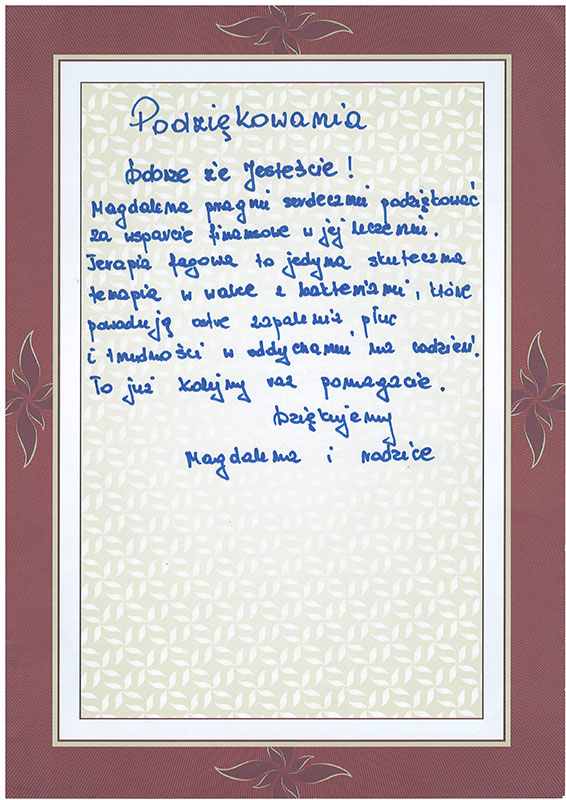 Podziękowania
Dobrze że Jesteście!
Magdalena pragnie serdecznie podziękować
za wsparcie finansowe w jej leczeniu.
Terapia fagowa to jedyna skuteczna
terapia w walce z bakteriami, które
powodują ostre zapalenia płuc
i trudności w oddychaniu na codzień.
To już kolejny raz pomagacie.
Dziękujemy
Magdalena i rodzice